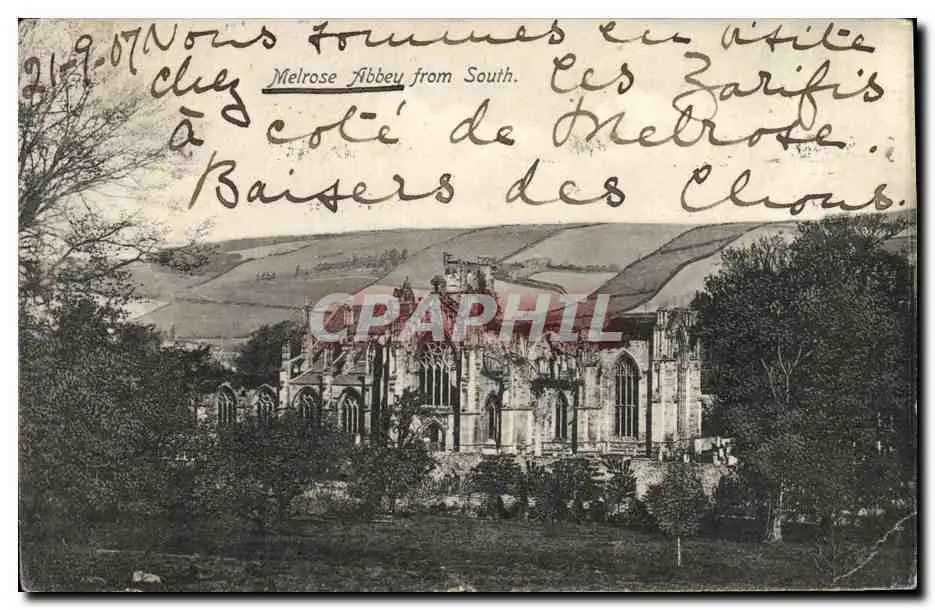 21-9.07 Nous sommes en visite
chez Melrose Abbey from South. les Zarifis
à coté de Melrose.
Baisers des Chous.
CPAPHIL